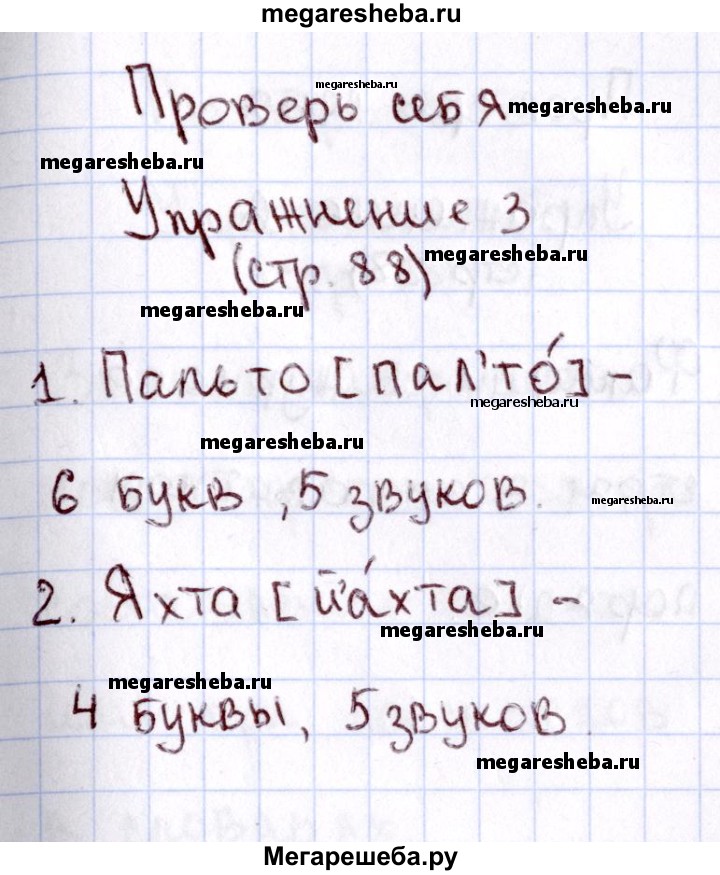 megaresheba.ru
Проверь себя
megaresheba.ru
megaresheba.ru
megaresheba.ru
Упражнение 3
(стр. 88)
megaresheba.ru
megaresheba.ru
1. Пальто [пал'то́] –
megaresheba.ru
megaresheba.ru
6 букв, 5 звуков.
megaresheba.ru
2. Яхта [й'а́хта] –
megaresheba.ru
megaresheba.ru
4 буквы, 5 звуков.
megaresheba.ru
Мегарешеба.ру